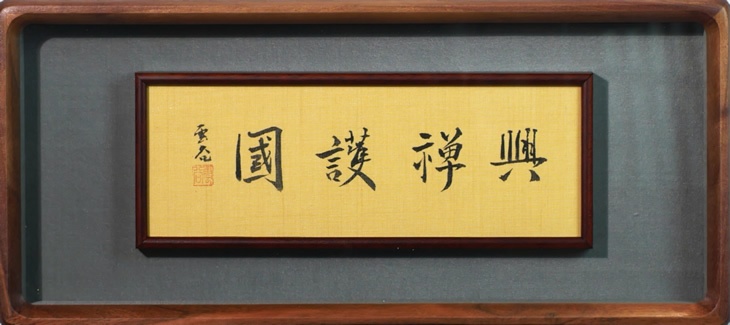 興禅護國
雲庵